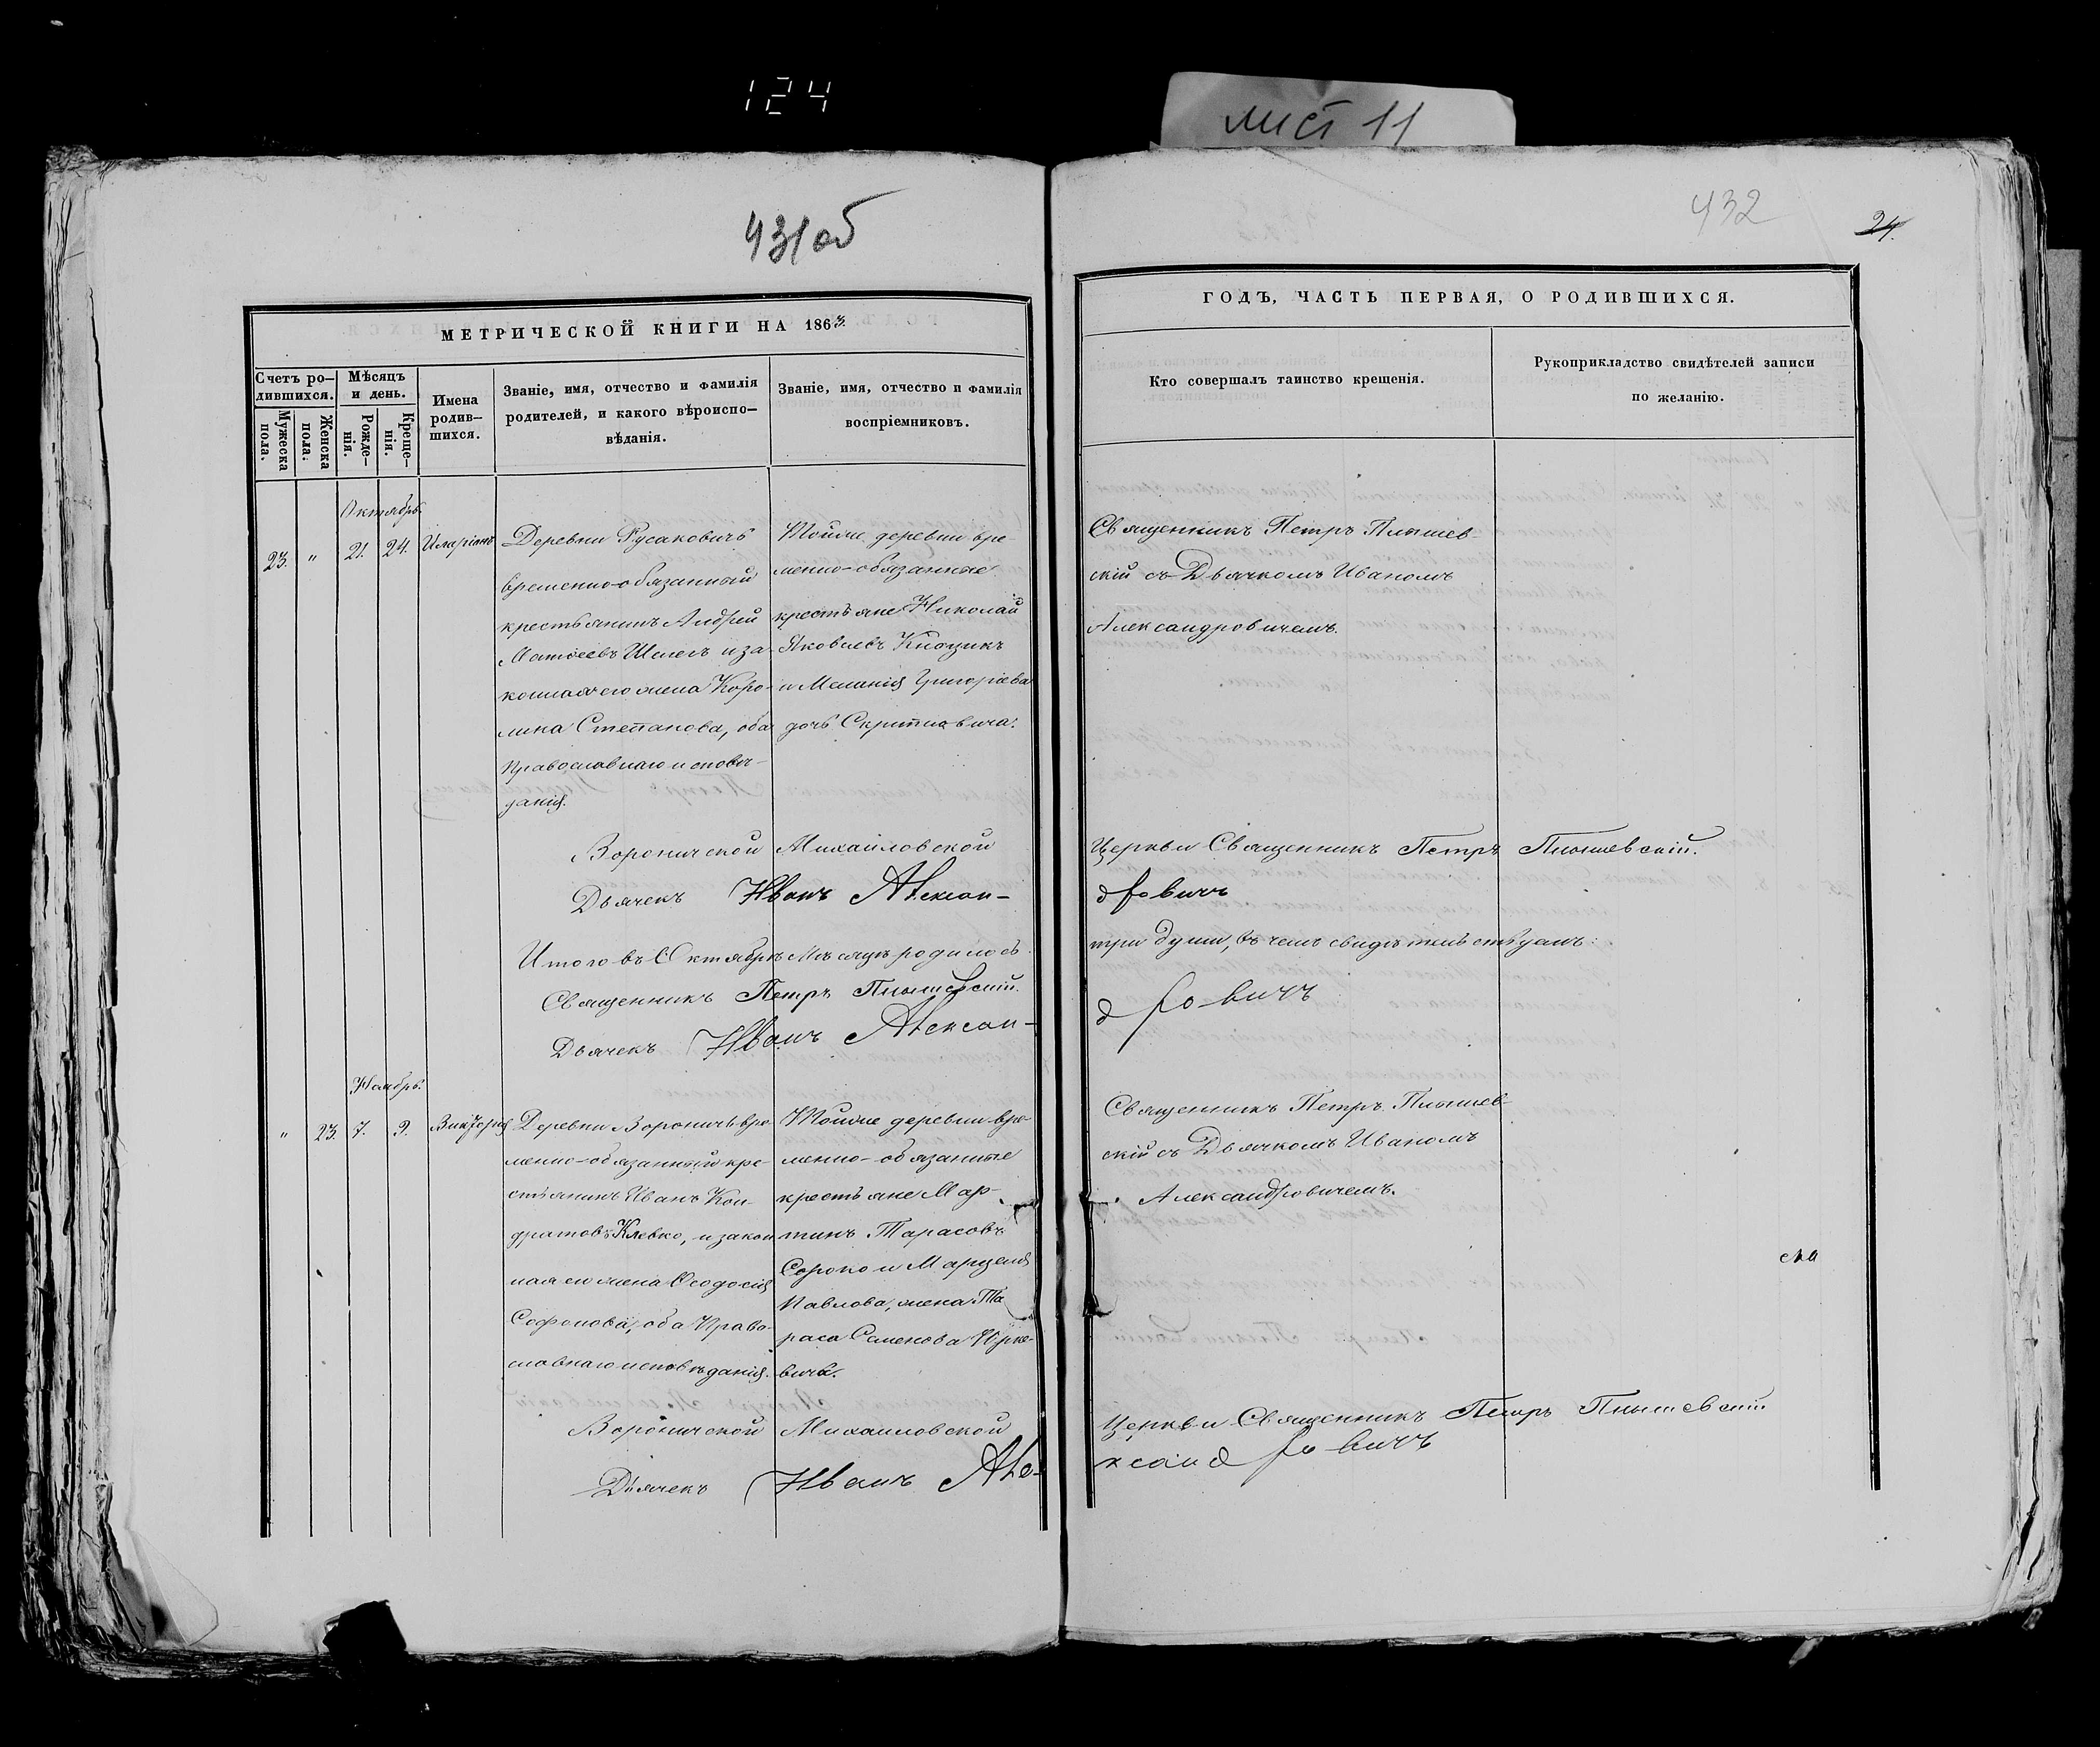 124
лист 11
431об
432
24.
МЕТРИЧЕСКОЙ КНИГИ НА 1863.
ГОДЪ, ЧАСТЬ ПЕРВАЯ, О РОДИВШИХСЯ.
Счетъ ро-
дившихся.
Мужеска
пола.
Женска
пола.
Мѣсяцъ
и день.
Рожде-
нія.
Креще-
нія.
Имена
родив-
шихся.
Званіе, имя, отчество и фамилія
родителей, и какого вѣроиспо-
вѣданія.
Званіе, имя, отчество и фамилія
воспріемниковъ.
Кто совершалъ таинство крещенія.
Рукоприкладство свидѣтелей записи
по желанію.
Октябрь
23. " 21. 24. Иларіонъ
Деревни Русаковичъ
временно-обязанный
крестьянинъ Андрей
Матѳеевъ и за-
конная его жена Каро-
лина Степанова, оба
православнаго исповѣ-
данія.
Тойже деревни вре-
менно-обязанные
крестьяне Николай
Яковлевъ
и Меланія Григоріева
дочь
Священникъ Петръ Плышев-
скій съ Дьячкомъ Иваномъ
Александровичемъ.
Вороничской Михайловской Церкви Священникъ Петръ Плышевскій.
Дьячекъ Иванъ Алексан-
дровичъ
Итого въ Октябрѣ мѣсяцѣ родилось три души, въ чемъ свидѣтельствуемъ:
Священникъ Петръ Плышевскій.
Дьячекъ Иванъ Алексан-
дровичъ
Ноябрь.
" 23. 7. 9. Викторія
Деревни Вороничъ вре-
менно-обязанный кре-
стьянинъ Иванъ Кон-
дратовъ Клевко, и закон
ная его жена Ѳеодосія
Софонова, оба Право-
славнаго исповѣданія.
Тойже деревни вре-
менно-обязанные
крестьяне Мар-
тинъ Тарасовъ
Сороко и Марцеля
Павлова, жена Та
раса Семенова Юрке-
вича.
Священникъ Петръ Плышев-
скій съ Дьячкомъ Иваномъ
Александровичемъ.
Вороничской Михайловской Церкви Священникъ Петръ Плышевскій
Дьячекъ Иванъ Але-
ксандровичъ